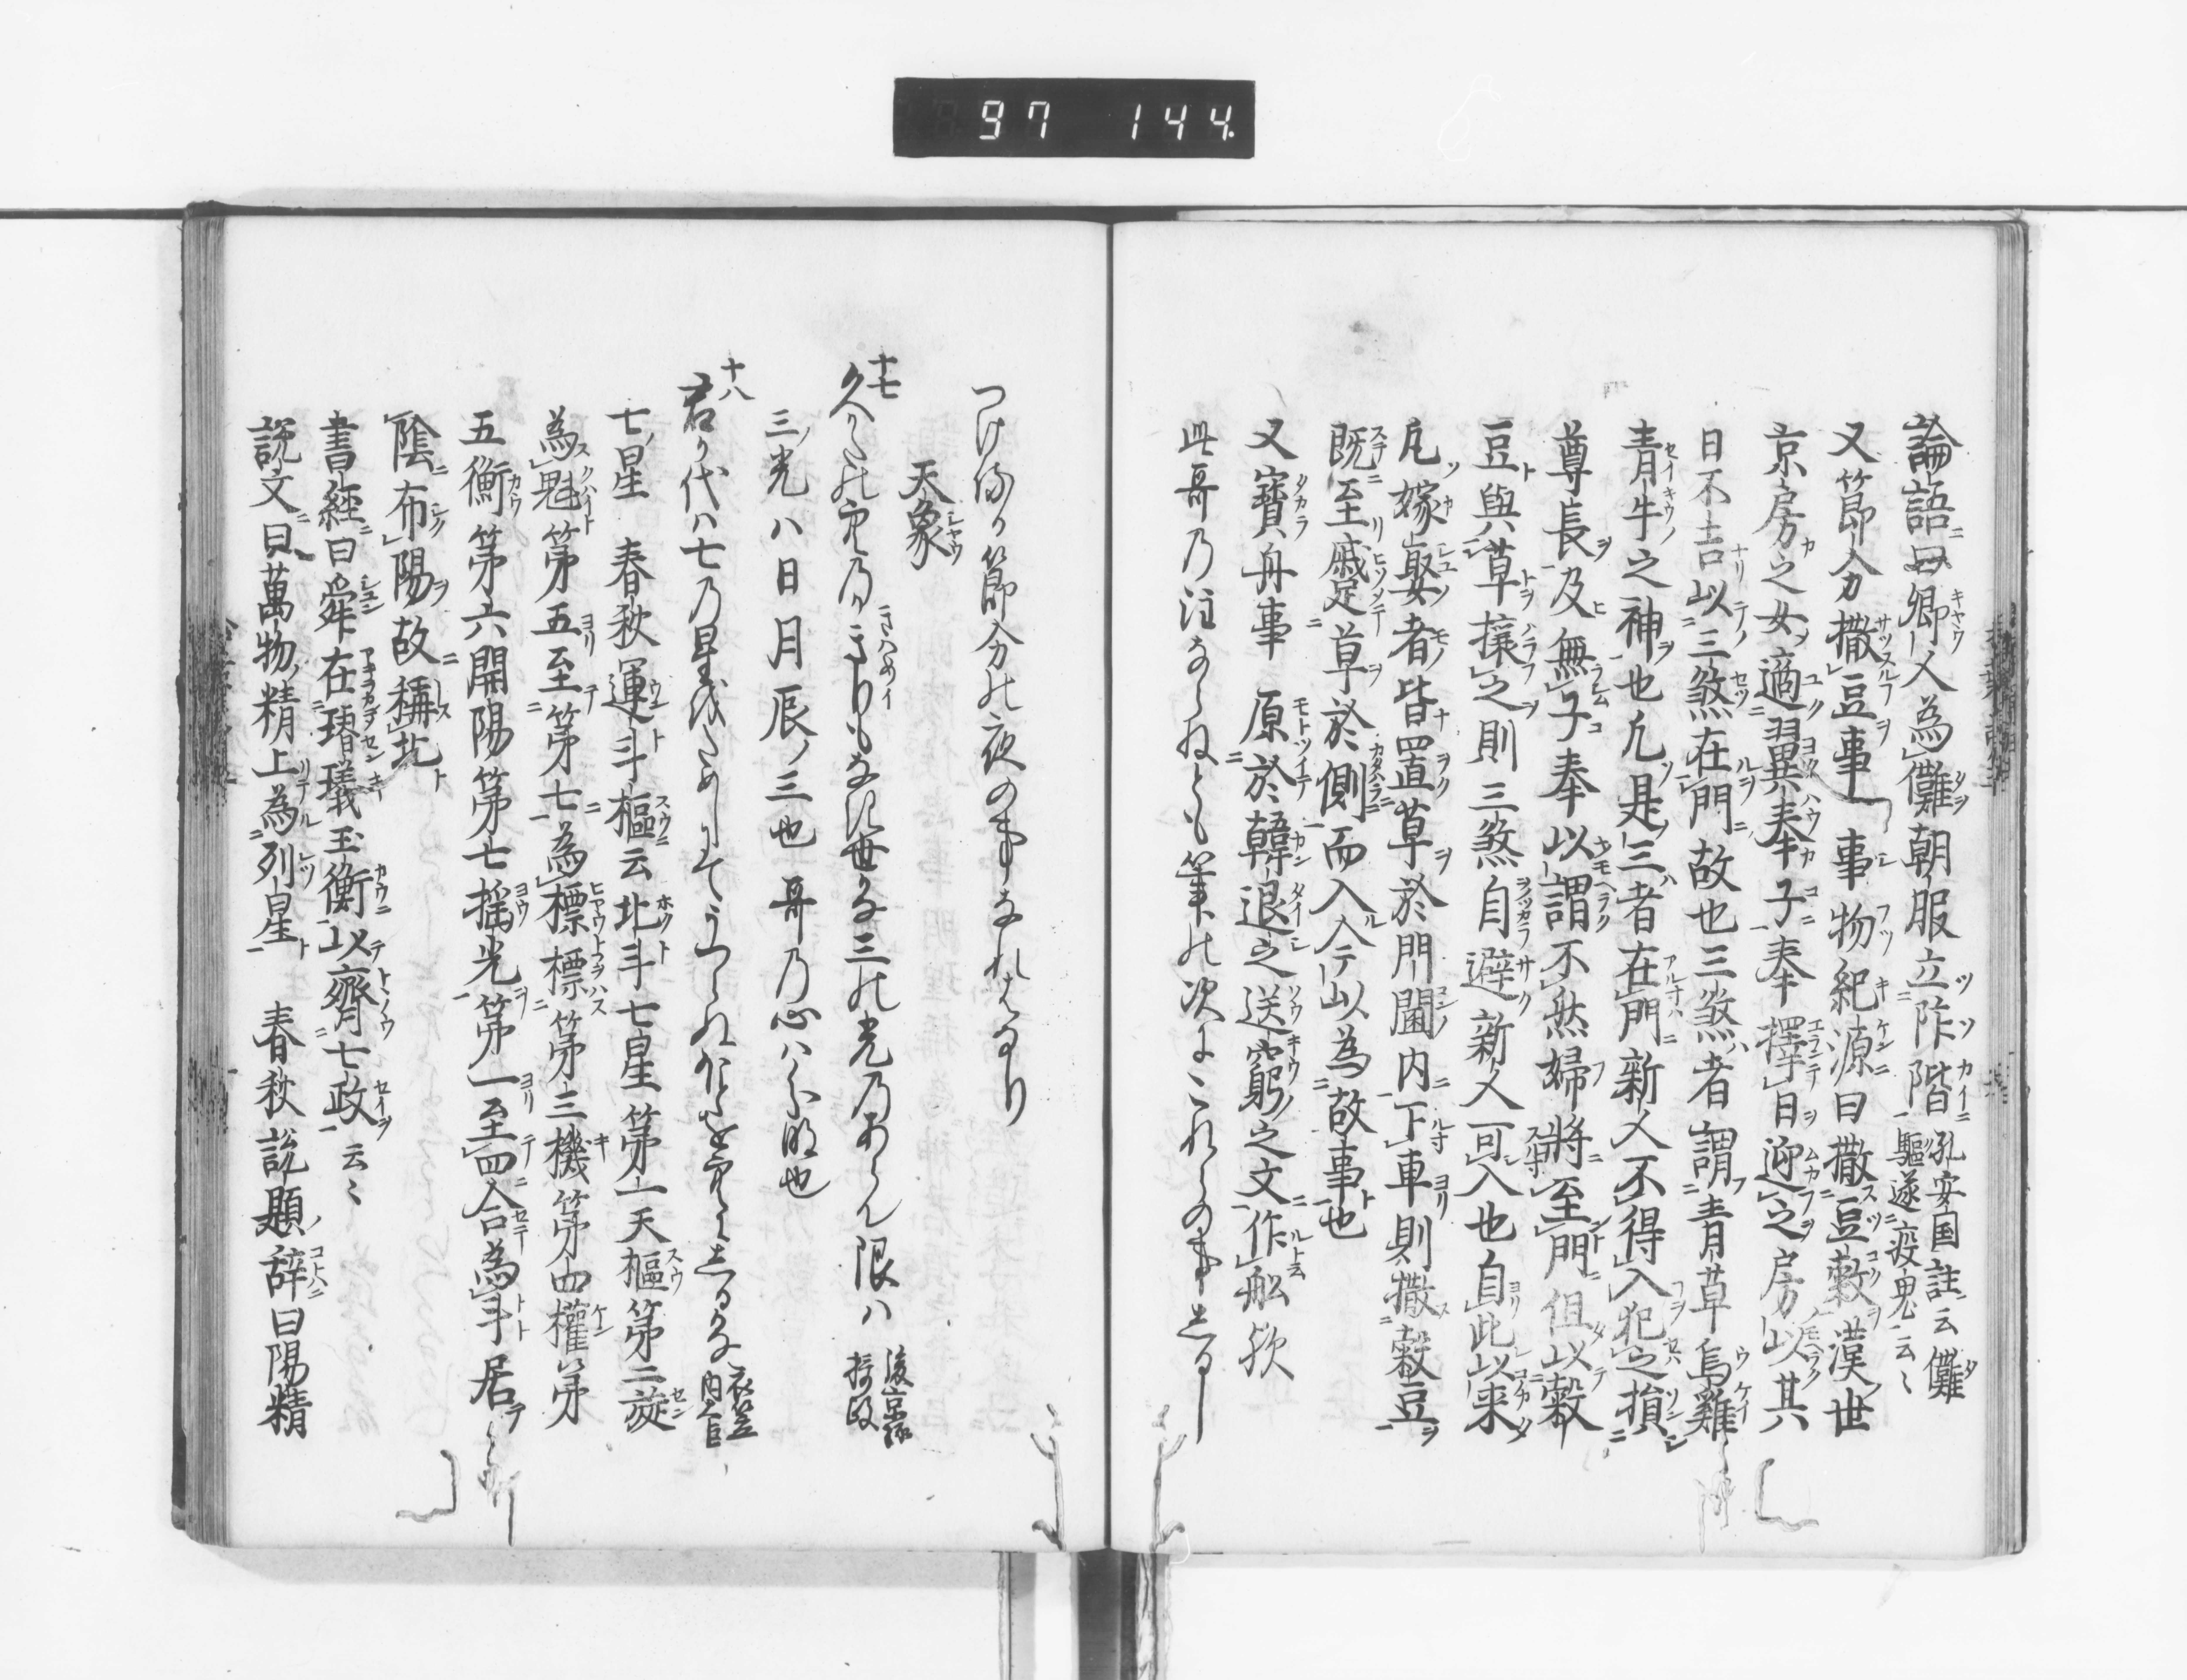 97 144
論語曰郷人為儺朝服立阼階孔安国註云儺
驅逐疫鬼云〻
又節分撒豆事 事物紀源曰撒豆穀漢世
京房之女適翼奉子奉擇日迎之房以其
日不吉以三煞在門故也三煞者謂青草烏雞
青牛之神也凡是三者在門新人不得入犯之損
尊長及無子奉以謂不然婦將至門但以穀
豆與草攘之則三煞自避新人可入也自此以来
凡嫁娶者皆置草於門閫内下車則撒穀豆
既至蹙草於側而入今以為故事也
又寶舟事 原於韓退之送窮之文作舩欤
此哥乃注ならねとも筆の次によ これらの事しるし
つけ侍る節分の夜の事なれはなり
天象
十七
久かたの空乃かきりもなき世なる三の光乃あらん限ハ 後京極摂政
三光ハ日月辰ノ三也 哥乃心ハ分明也
十八
君か代ハ七乃星をためしにてうつらぬかけを空にしるかな 衣笠内大臣
七星 春秋運斗樞云北斗七星第一天樞第二璇
為魁第五至第七為標標第三機第四權第
五衡第六開陽第七揺光第一至四合為斗居
陰布陽故稱北
書経曰舜在璿璣玉衡以齊七政云〻
説文曰萬物精上為列星 春秋説題辞曰陽精